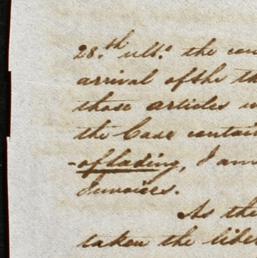 28.th ult.o the con
arrival of the th
those articles w
the Case contain
of lading, I am
Invoices.
As the
taken the liber